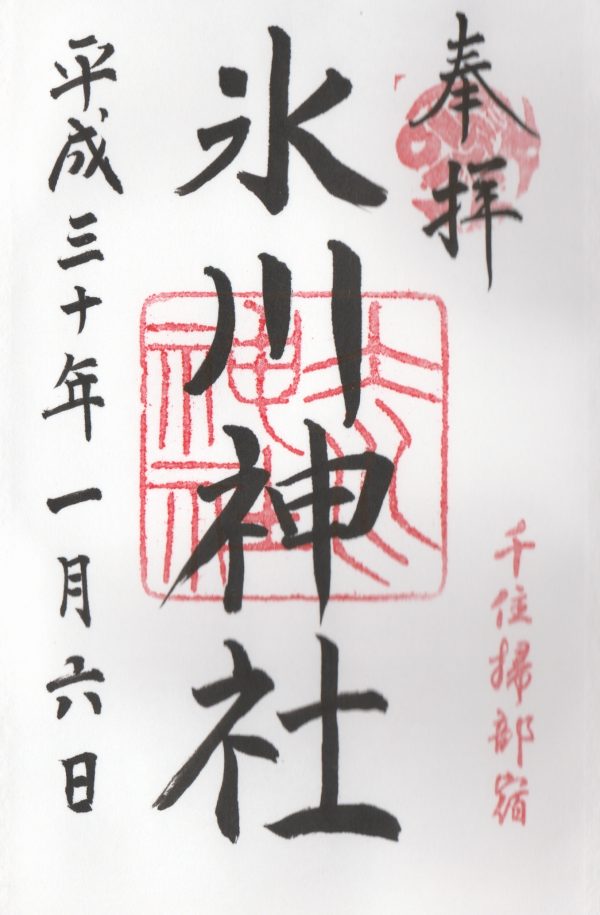 奉拝
千住掃部宿
氷川神社
氷川神社
平成三十年一月六日